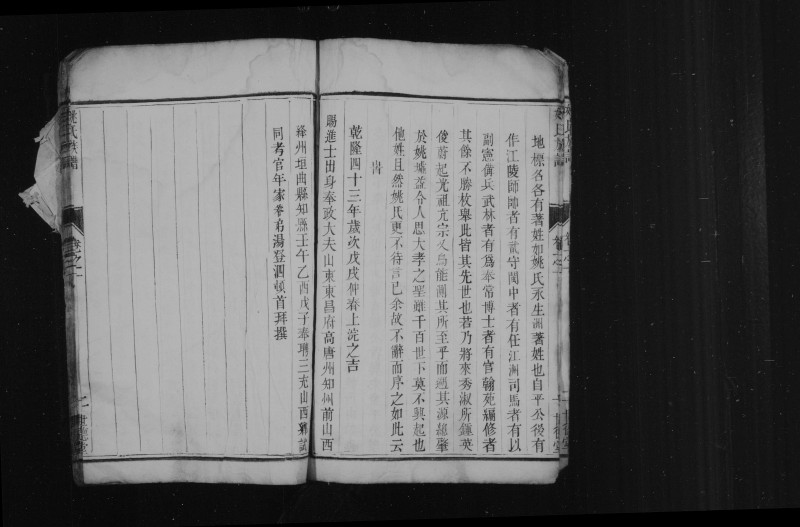 地標名各有著姓如姚氏永生洲著姓也自平公後有
作江陵師帥者有貳守閩中者有任江洲司馬者有以
副憲備兵武林者有爲奉常博士者有官翰苑編修者
其餘不勝枚舉此皆其先世也若乃將來秀淑所鍾英
俊蔚起光祖亢宗又烏能測其所至乎而遡其源總肇
於姚墟益令人思大孝之聖雖千百世下莫不興起也
他姓且然姚氏更不待言已余故不辭而序之如此云
旹
乾隆四十三年歲次戊戌仲春上浣之吉
賜進士出身奉政大夫山東東昌府高唐州知州前山西
絳州垣曲縣知縣壬午乙酉戊子奉聘三充山西鄉試
同考官年家眷弟湯登泗頓首拜撰
姚氏族譜
卷之一
二
世德堂